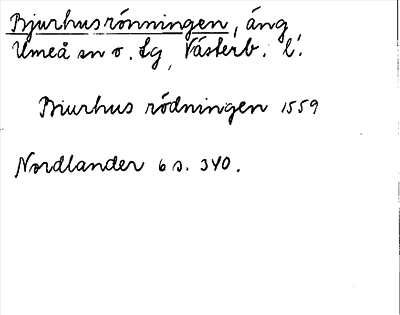 Bjurhusrönningen, äng,
Umeå sn o. tg, Västerb. l.
Biurhus rödningen 1559
Nordlander 6 s. 340.